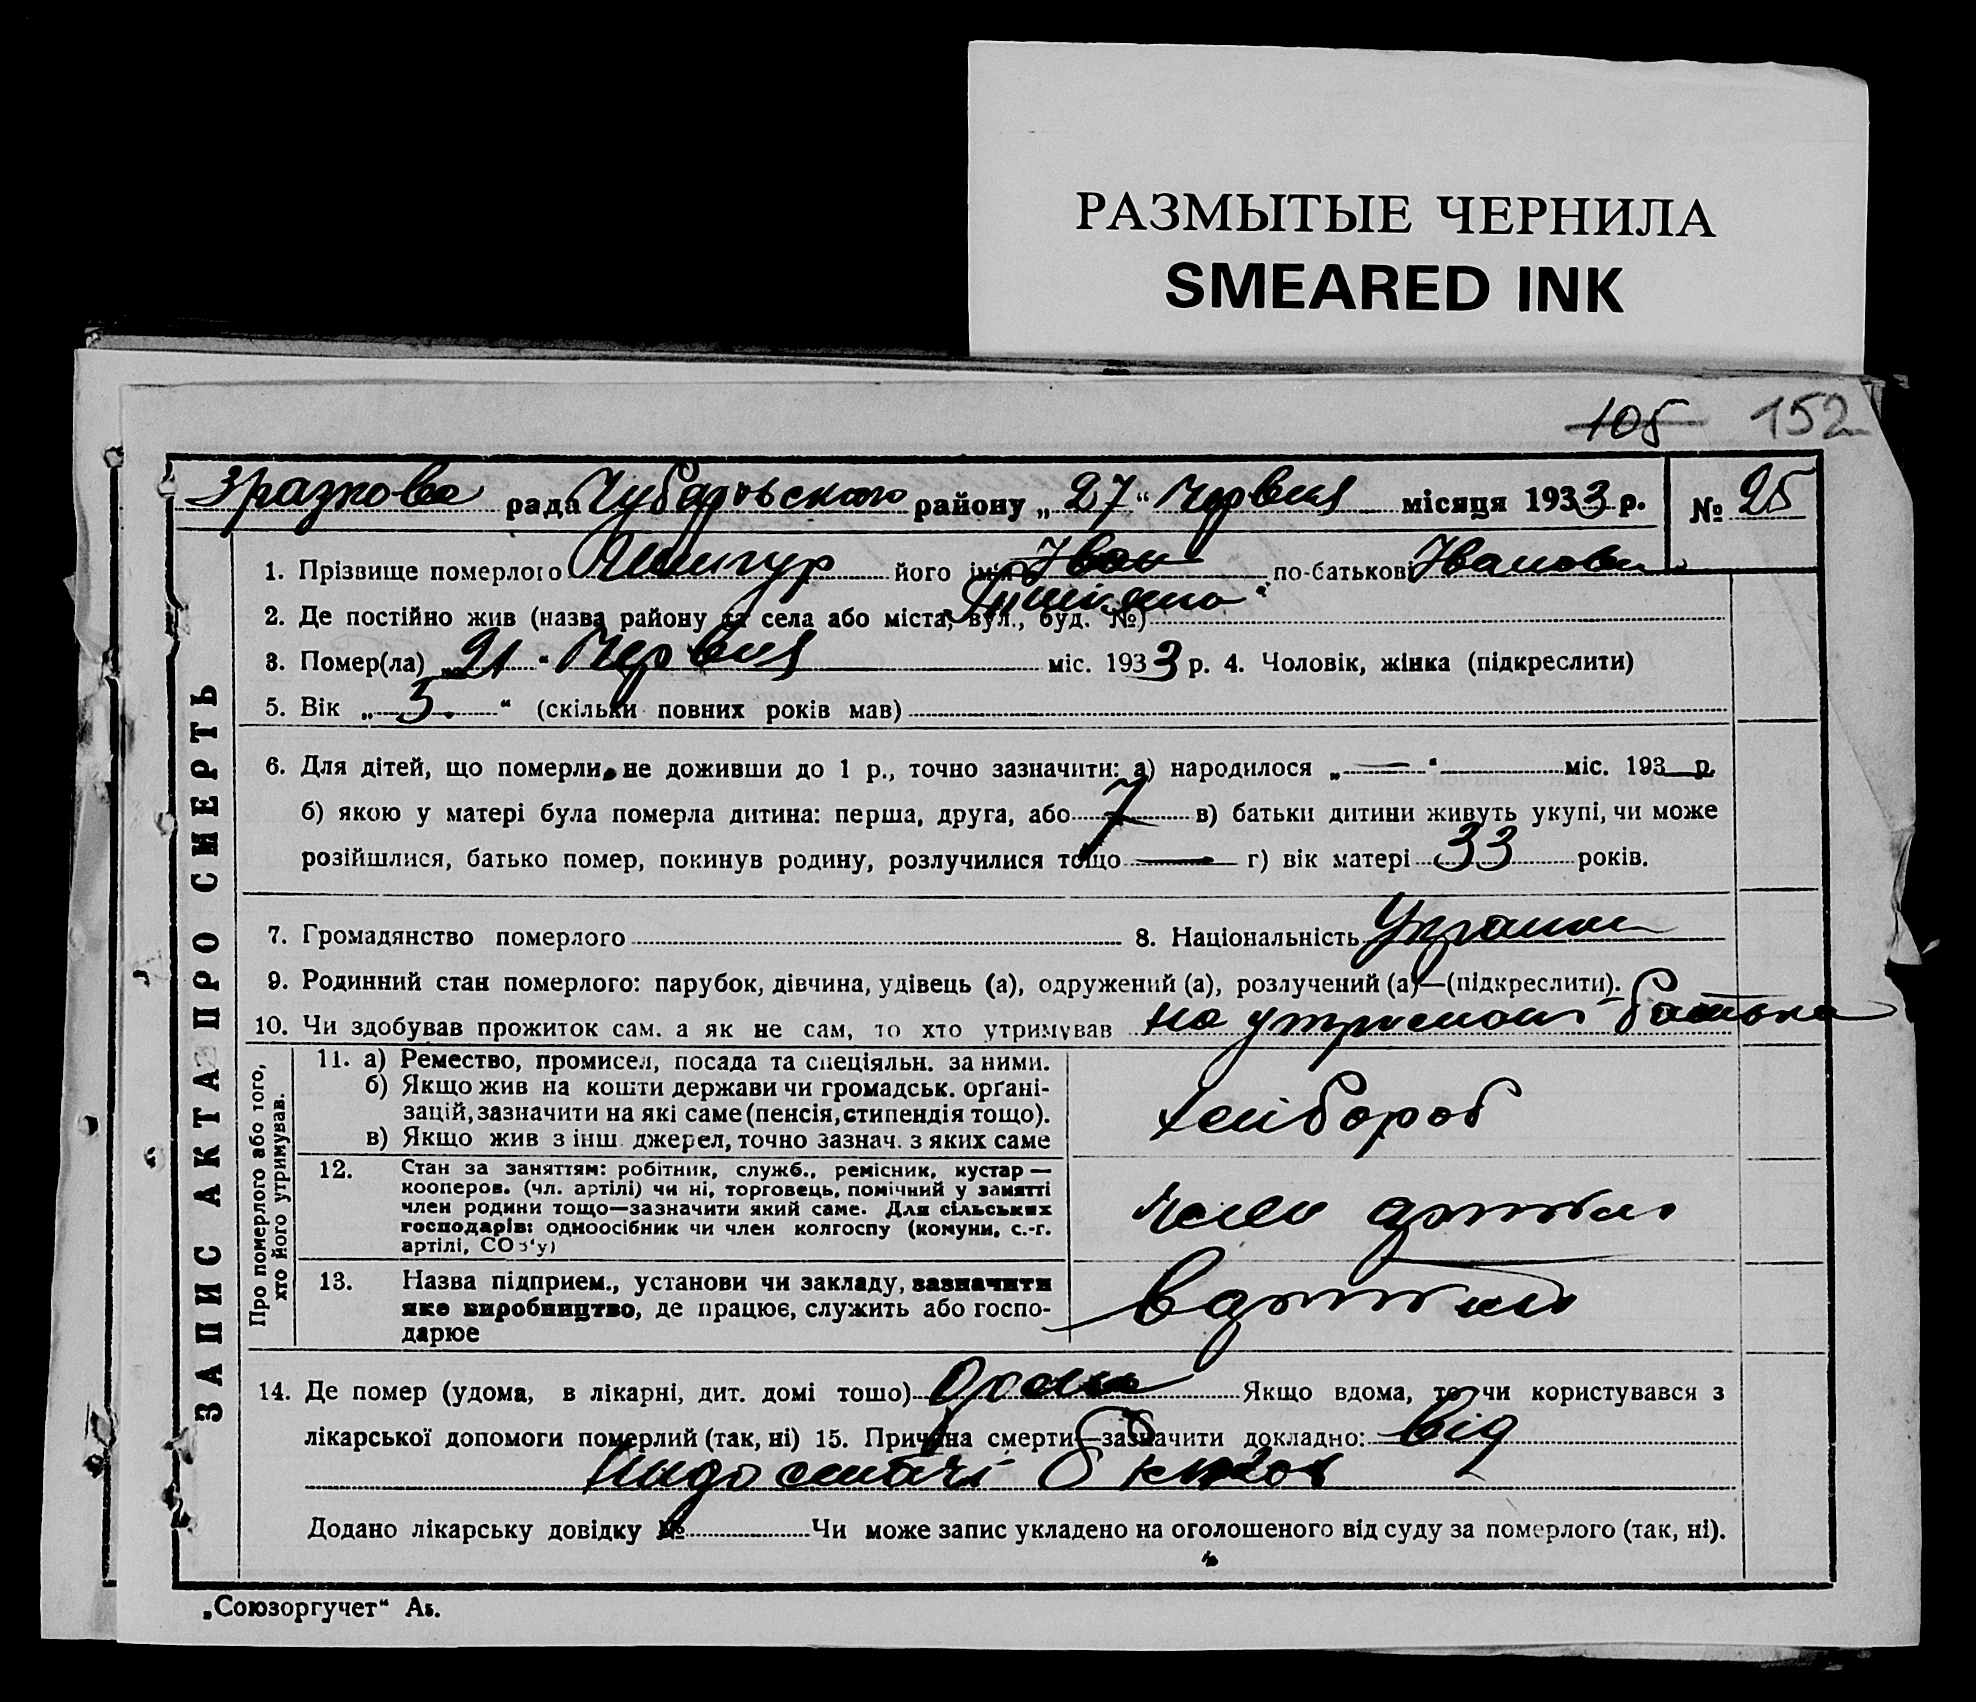 РАЗМЫТЫЕ ЧЕРНИЛА
SMEARED INK
105 152
Зразкова рада Чубарвского району „27“ червня місяця 1933 р. № 25
ЗАПИС АКТА ПРО СМЕРТЬ
1. Прізвище померлого його ім'я Іван по-батькові Іванови
2. Де постійно жив (назва району та села або міста, вул., буд. №)
3. Помер(ла) „21“ червня міс. 1933 р. 4. Чоловік, жінка (підкреслити)
5. Вік „5.“ (скільки повних років мав)
6. Для дітей, що померли, не доживши до 1 р., точно зазначити: а) народилося „—“ міс. 193 р.
б) якою у матері була померла дитина: перша, друга, або 7 в) батьки дитини живуть укупі, чи може
розійшлися, батько помер, покинув родину, розлучилися тощо — г) вік матері 33 років.
7. Громадянство померлого 8. Національність Украин
9. Родинний стан померлого: парубок, дівчина, удівець (а), одружений (а), розлучений (а)—(підкреслити).
10. Чи здобував прожиток сам, а як не сам, то хто утримував на утримані батька
Про померлого або того, хто його утримував.
11. а) Ремество, промисел, посада та спеціяльн. за ними.
б) Якщо жив на кошти держави чи громадськ. орґані-
зацій, зазначити на які саме (пенсія, стипендія тощо).
в) Якщо жив з інш. джерел, точно зазнач. з яких саме
хлібороб
12. Стан за заняттям: робітник, служб., ремісник, кустар —
кооперов. (чл. артілі) чи ні, торговець, помічний у занятті
член родини тощо—зазначити який саме. Для сільських
господарів: одноосібник чи член колгоспу (комуни, с.-г.
артілі, СОЗ'у)
член артіли
13. Назва підприєм., установи чи закладу, зазначити
яке виробництво, де працює, служить або госпо-
дарює
в артили
14. Де помер (удома, в лікарні, дит. домі тощо) дома Якщо вдома, то чи користувався з
лікарської допомоги померлий (так, ні) 15. Причина смерти—зазначити докладно: від
Додано лікарську довідку № Чи може запис укладено на оголошеного від суду за померлого (так, ні).
„Союзоргучет“ А5.